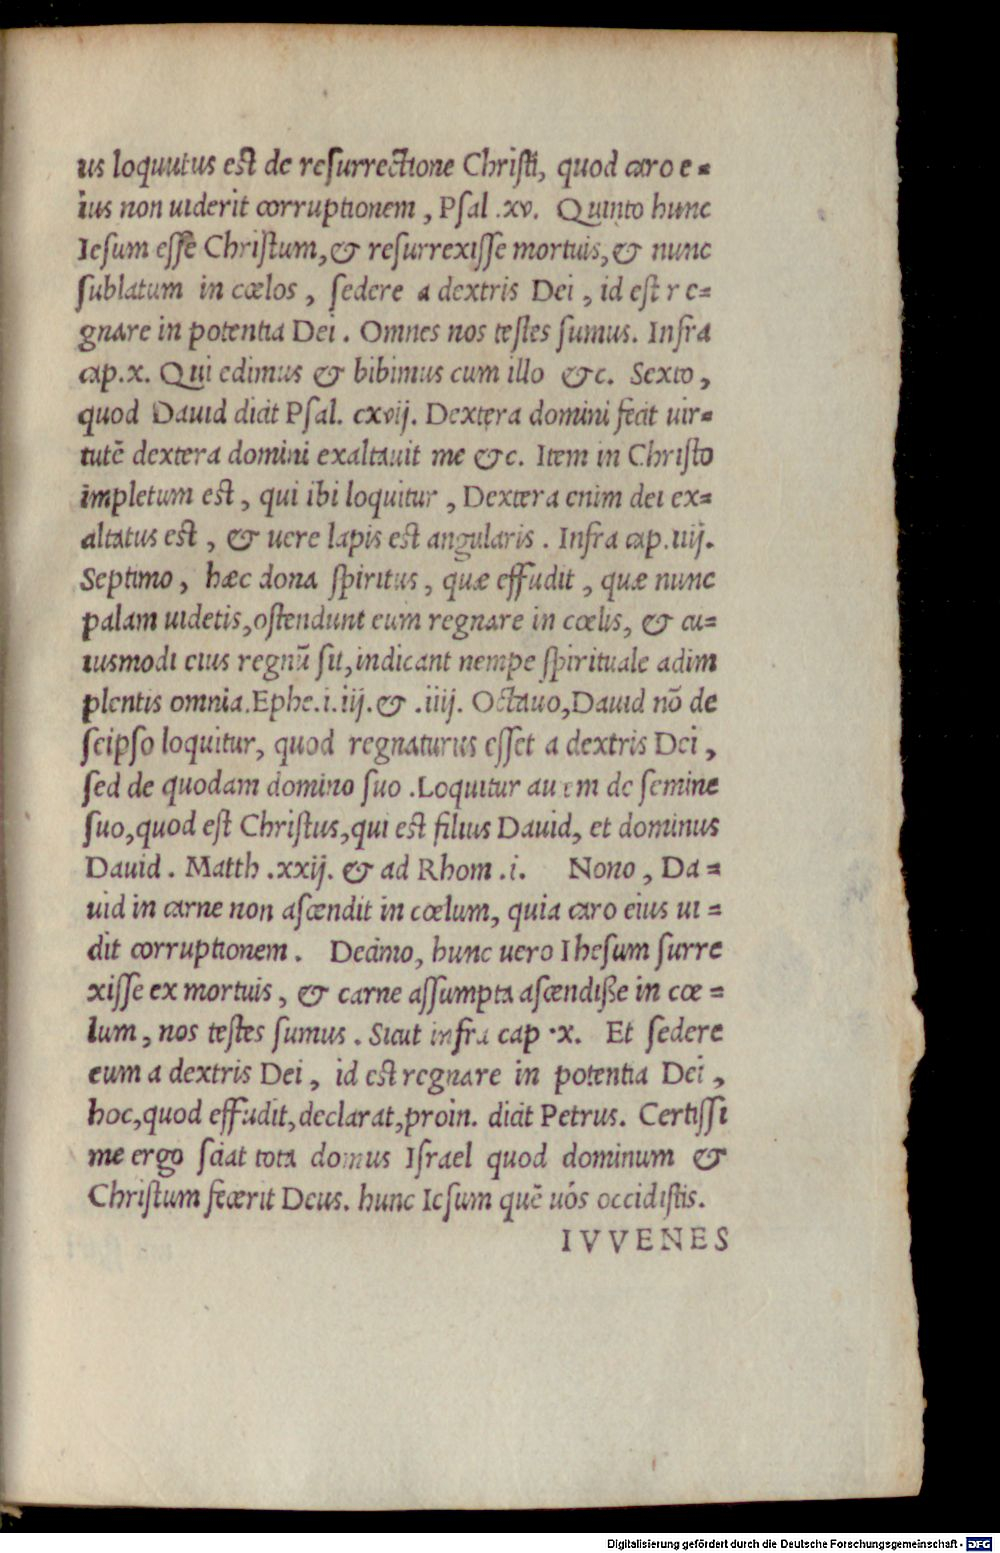 us loquutus est de resurrectione Christi, quod caro e=
ius non uiderit corruptionem, Psal .xv. Quinto hunc
Iesum esse Christum, & resurrexisse mortuis, & nunc
sublatum in cœlos, sedere a dextris Dei, id est re=
gnare in potentia Dei. Omnes nos testes sumus. Infra
cap.x. Qui edimus & bibimus cum illo &c. Sexto,
quod Dauid dicit Psal. cxvij. Dextera domini fecit uir=
tutē dextera domini exaltauit me &c. Item in Christo
impletum est, qui ibi loquitur, Dextera enim dei ex=
altatus est, & uere lapis est angularis. Infra cap.iiij.
Septimo, hæc dona spiritus, quæ effudit, quæ nunc
palam uidetis, ostendunt eum regnare in cœlis, & cu=
iusmodi eius regnū sit, indicant nempe spirituale adim
plentis omnia. Ephe.i.iij.& .iiij. Octauo, Dauid nō de
seipso loquitur, quod regnaturus esset a dextris Dei,
sed de quodam domino suo. Loquitur autem de semine
suo, quod est Christus, qui est filius Dauid, et dominus
Dauid. Matth .xxij. & ad Rhom .i. Nono, Da=
uid in carne non ascendit in cœlum, quia caro eius ui=
dit corruptionem. Decimo, hunc uero Ihesum surre
xisse ex mortuis, & carne assumpta ascendiße in cœ=
lum, nos testes sumus. Sicut infra cap .x. Et sedere
eum a dextris Dei, id est regnare in potentia Dei,
hoc, quod effudit, declarat, proin. dicit Petrus. Certissi
me ergo sciat tota domus Israel quod dominum &
Christum fecerit Deus. hunc Iesum quē uós occidistis.
IVVENES
Digitalisierung gefördert durch die Deutsche Forschungsgemeinschaft - DFG